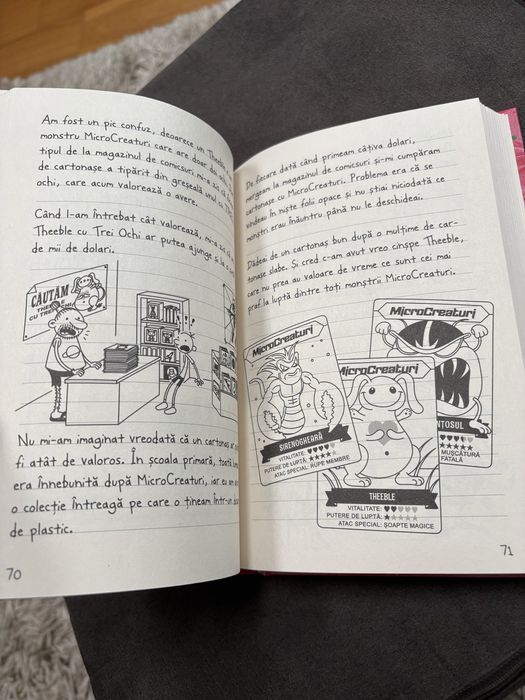 Am fost un pic confuz, deoarece un Theeble
monstru MicroCreaturi care are doar doi
tipul de la magazinul de comicsuri mi-a zis că
de cartonașe a tipărit din greșeală unul cu
ochi, care acum valorează o avere.
Când l-am întrebat cât valorează, mi-a zis că
Theeble cu Trei Ochi ar putea ajunge și la o
de mii de dolari.
CĂUTĂM
THEEBLE
CU TREI OCHI
Nu mi-am imaginat vreodată că un cartonaș ar
fi atât de valoros. În școala primară, toată
era înnebunită după MicroCreaturi, iar eu am
o colecție întreagă pe care o țineam într-un
de plastic.
70
De fiecare dată când primeam câțiva dolari,
mergeam la magazinul de comicsuri și-mi cumpăram
cartonașe cu MicroCreaturi. Problema era că se
vindeau în niște folii opace și nu știai niciodată ce
monștri erau înăuntru până nu le deschideai.
Dădeai de un cartonaș bun după o mulțime de car-
tonașe slabe. Și cred c-am avut vreo cinșpe Theeble,
care nu prea au valoare de vreme ce sunt cei mai
praf la luptă dintre toți monștrii MicroCreaturi.
MicroCreaturi
SIRENOGHEARĂ
VITALITATE:
PUTERE DE LUPTĂ:
ATAC SPECIAL: RUPE MEMBRE
MicroCreaturi
THEEBLE
VITALITATE:
PUTERE DE LUPTĂ:
ATAC SPECIAL: ȘOAPTE MAGICE
MicroCreaturi
MUȘCĂTURĂ
FATALĂ
71